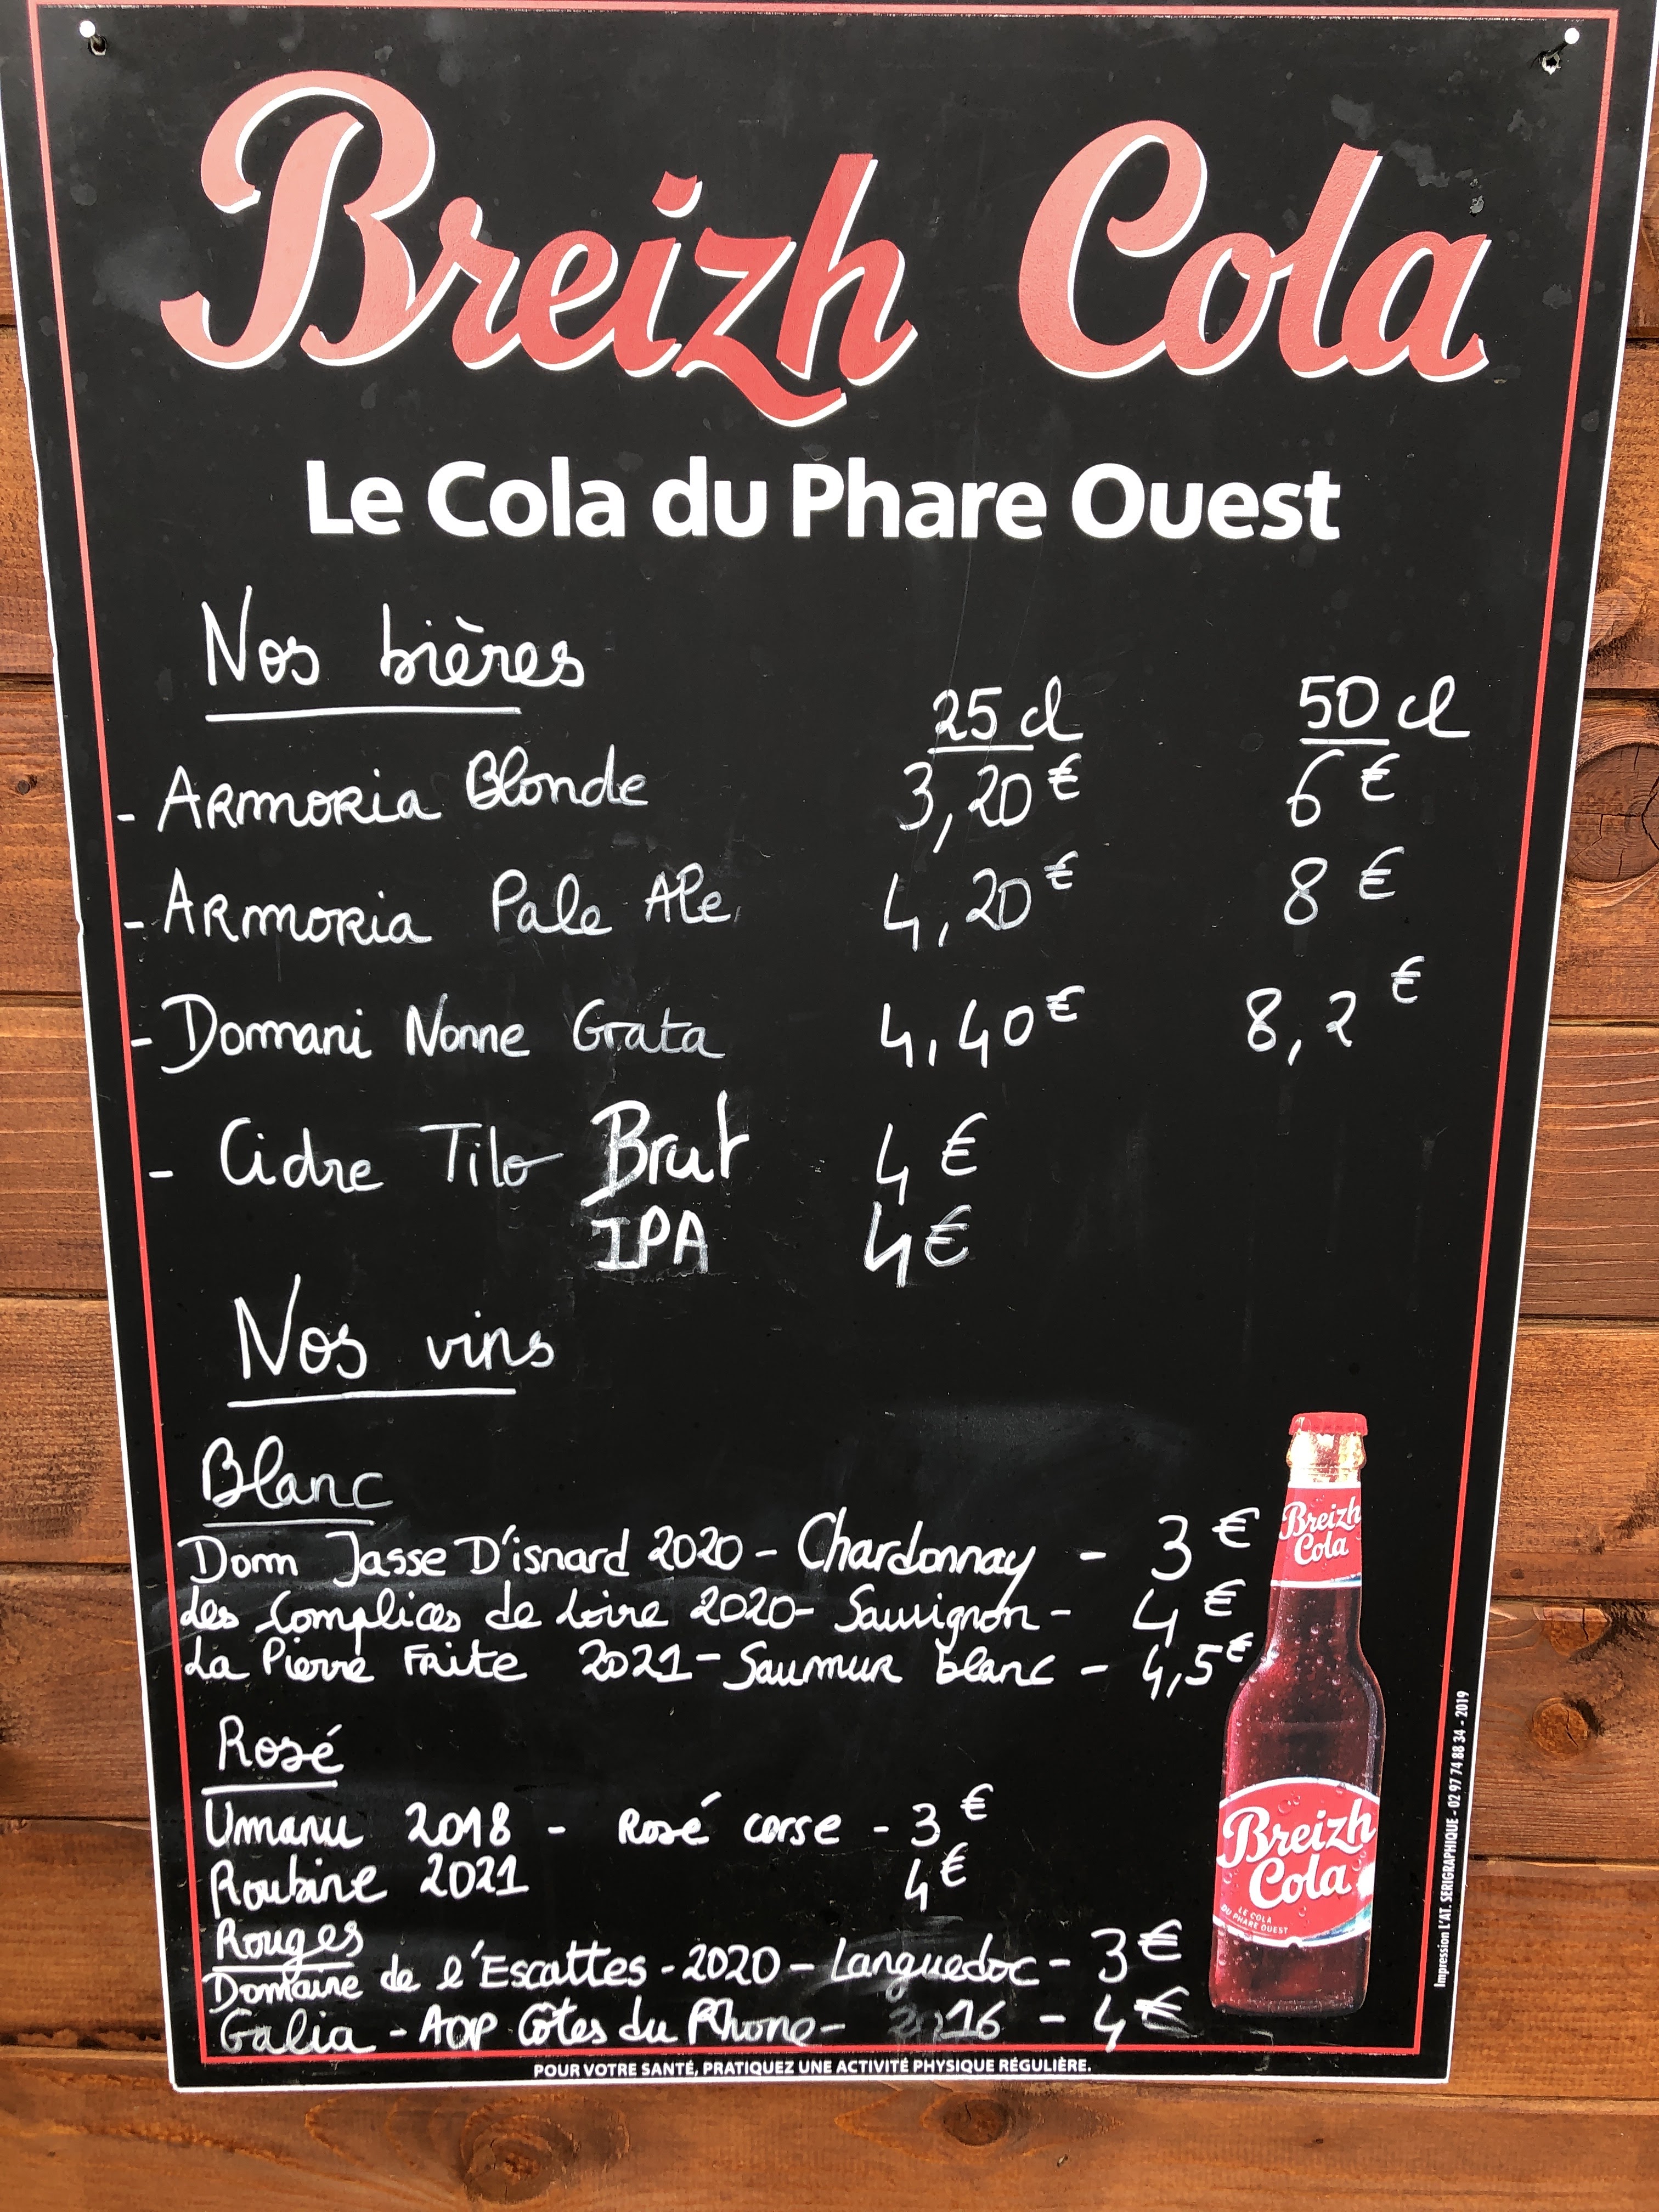 Breizh Cola
Le Cola du Phare Ouest
Nos bières
25 cl 50 cl
- Armoria Blonde 3,20 € 6 €
- Armoria Pale Ale 4,20 € 8 €
- Domani Nonne Grata 4,40 € 8,2 €
- Cidre Tilo Brut 4 €
IPA 4 €
Nos vins
Blanc
Dom Jasse D'isnard 2020 - Chardonnay - 3 €
Les Complices de Loire 2020 - Sauvignon - 4 €
La Pierre Frite 2021 - Saumur blanc - 4,5 €
Rosé
Umanu 2018 - Rosé corse - 3 €
Roubine 2021 4 €
Rouges
Domaine de l'Escattes - 2020 - Languedoc - 3 €
Galia - AOP Côtes du Rhone - 2016 - 4 €
Breizh
Cola
Breizh
Cola
LE COLA
DU PHARE OUEST
POUR VOTRE SANTÉ, PRATIQUEZ UNE ACTIVITÉ PHYSIQUE RÉGULIÈRE.
Impression L'AT. SERIGRAPHIQUE - 02 97 74 88 34 - 2019